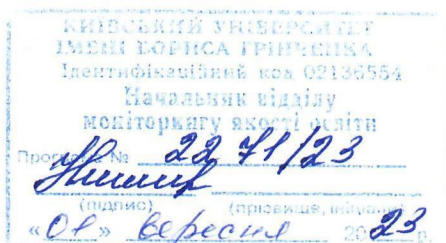 КИЇВСЬКИЙ УНІВЕРСИТЕТ
ІМЕНІ БОРИСА ГРІНЧЕНКА
Ідентифікаційний код 02136554
Начальник відділу
моніторингу якості освіти
Програма № 2271/23
(підпис) (прізвище, ініціали)
«01» вересня 2023 р.